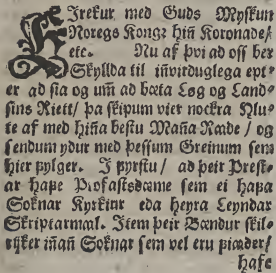 EIrekur med Guds Myskun
Noregs Kongz hin̄ Koronade/
etc. Nu af þvi ad oss ber
Skyllda til in̄virduglega ept=
er ad sia og um̄ ad bæta Løg og Land=
sins Riett/ þa skipum vier nockra Hlu=
te af med hin̄a bestu Man̄a Ræde/ og
sendum ydur med þessum Greinum sem
hier fylger. I fyrstu/ ad þeir Prest=
ar hafe Profastsdæme sem ei hafa
Soknar Kyrkiur eda heyra Leyndar
Skriptarmæl. Item þeir Bændur skil=
rijker in̄an Soknar sem vel eru fiæder/
hafe